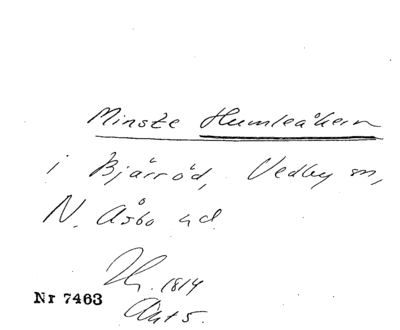 Minste Humleåkern
i Bjärröd, Vedby sn,
N. Åsbo hd.
1814
Akt 5.
Nr 7463